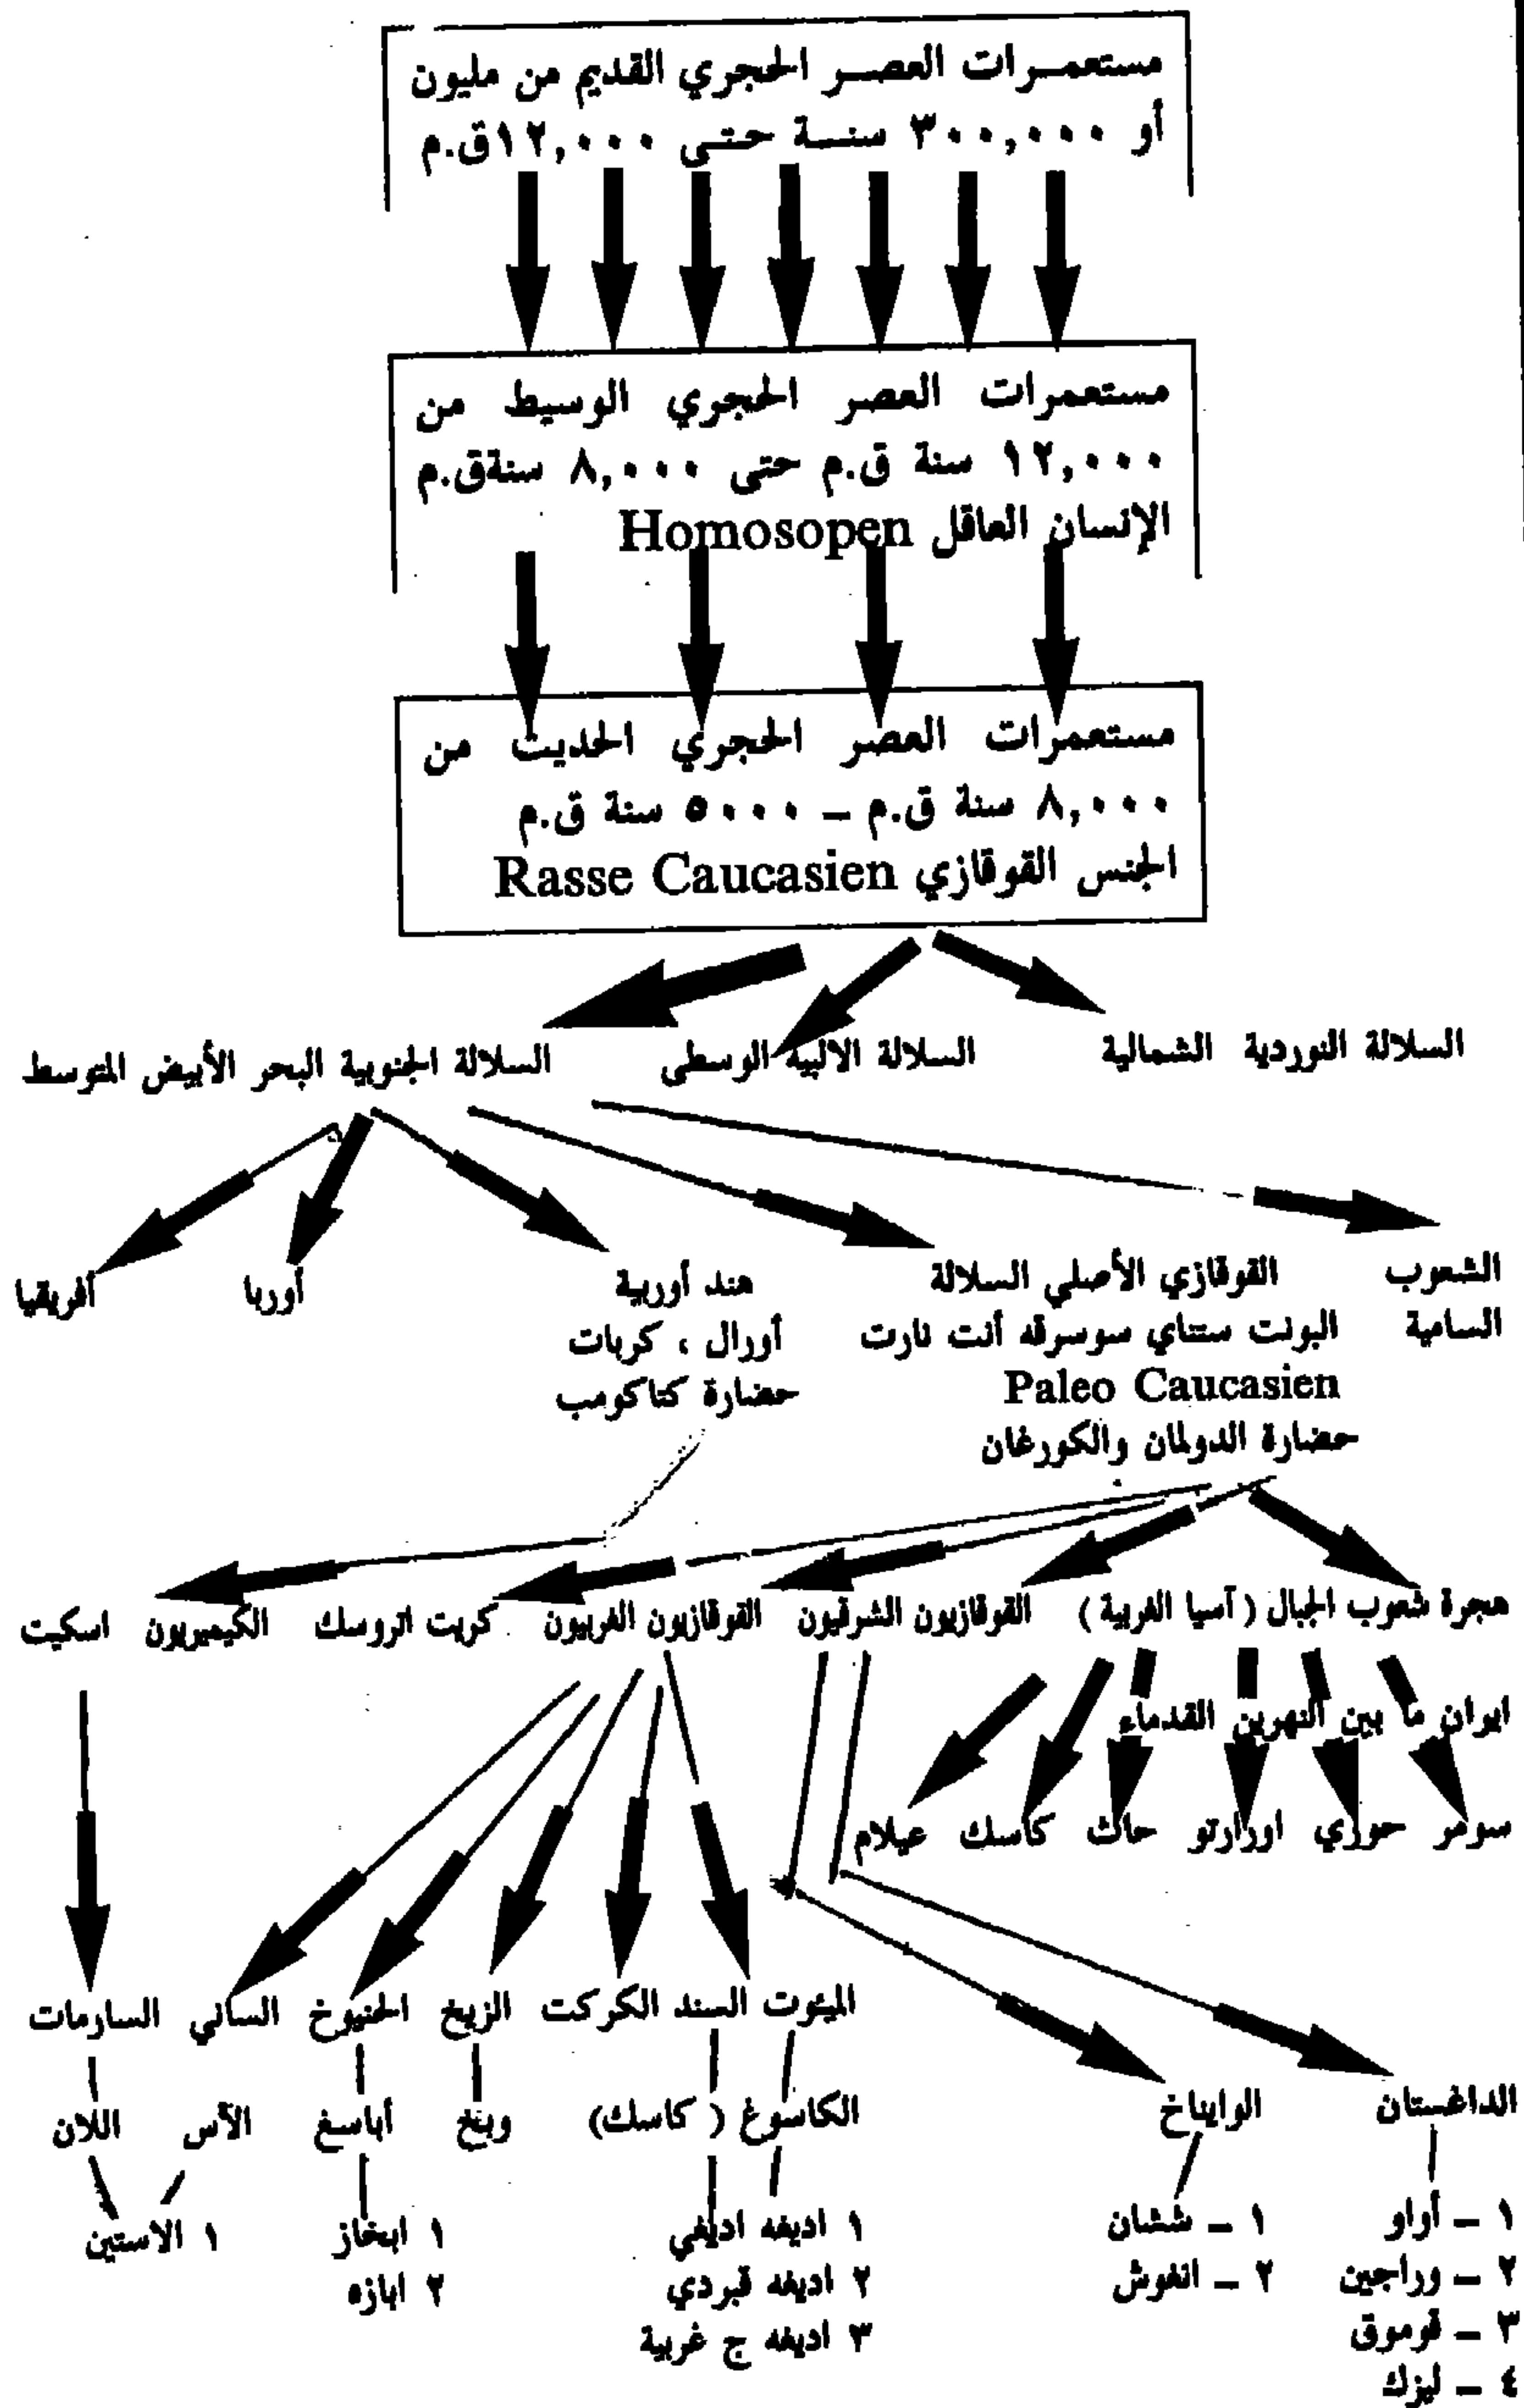 مستعمرات العصر الحجري القديم من مليون
أو ٣٠٠,٠٠٠ سنة حتى ١٢,٠٠٠ق.م
مستعمرات العصر الحجري الوسيط من
١٢,٠٠٠ سنة ق.م حتى ٨,٠٠٠ سنةق.م
الإنسان العاقل Homosopen
مستعمرات العصر الحجري الحديث من
٨,٠٠٠ سنة ق.م – ٥٠٠٠ سنة ق.م
الجنس القوقازي Rasse Caucasien
السلالة النوردية الشمالية
السلالة الالبيه الوسطى
السلالة الجنوبية البحر الأبيض المتوسط
الشعوب
السامية
القوقازي الأصلي السلالة
البونت ستناي سوسرقه أنت نارت
Paleo Caucasien
حضارة الدولمان والكورغان
هند أوربية
أورال ، كربات
حضارة كتاكومب
أوربا
أفريقيا
هجرة شعوب الجبال (آسيا الغربية)
القوقازيون الشرقيون
القوقازيون الغربيون
كريت اتروسك
الكيميريون
اسكيت
ايران ما بين النهرين القدماء
سومر حوري اورارتو حاث كاسك عيلام
الميئوت السند الكركت الزيخ الحنيوخ الساني السارمات
الداغستان
الوايناخ
الكاسوغ (كاسك)
وبيخ
أباسغ
الآس
اللان
١ – أواو
٢ – وراجين
٣ – قوموق
٤ – ليزك
١ – ششان
٢ – انغوش
١ اديغه اديغي
٢ اديغه قبردي
٣ اديغه ج غربية
١ ابخاز
٢ ابازه
١ الاستين